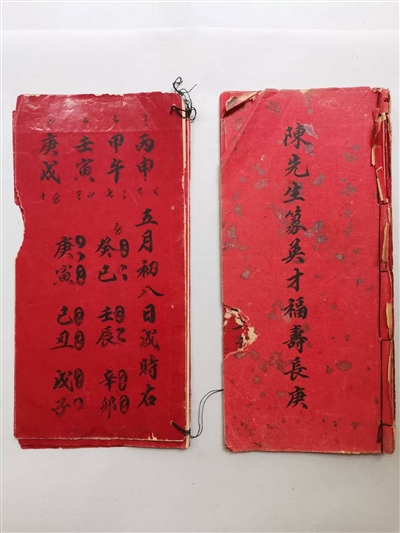 陳先生篆英才福壽長庚
丙申
甲午
壬寅
庚戌
五月初八日戌時右
癸巳 壬辰 辛卯
庚寅 己丑 戊子